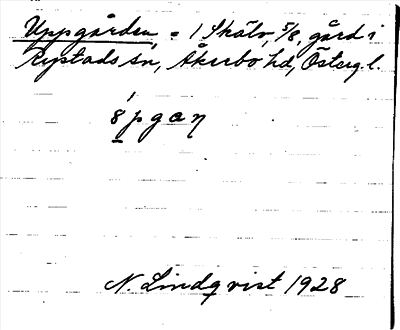 Uppgården = 1 Skälv, 5/8, gård i
Rystads sn, Åkerbo hd, Östergl.
8pgaη
N. Lindqvist 1928